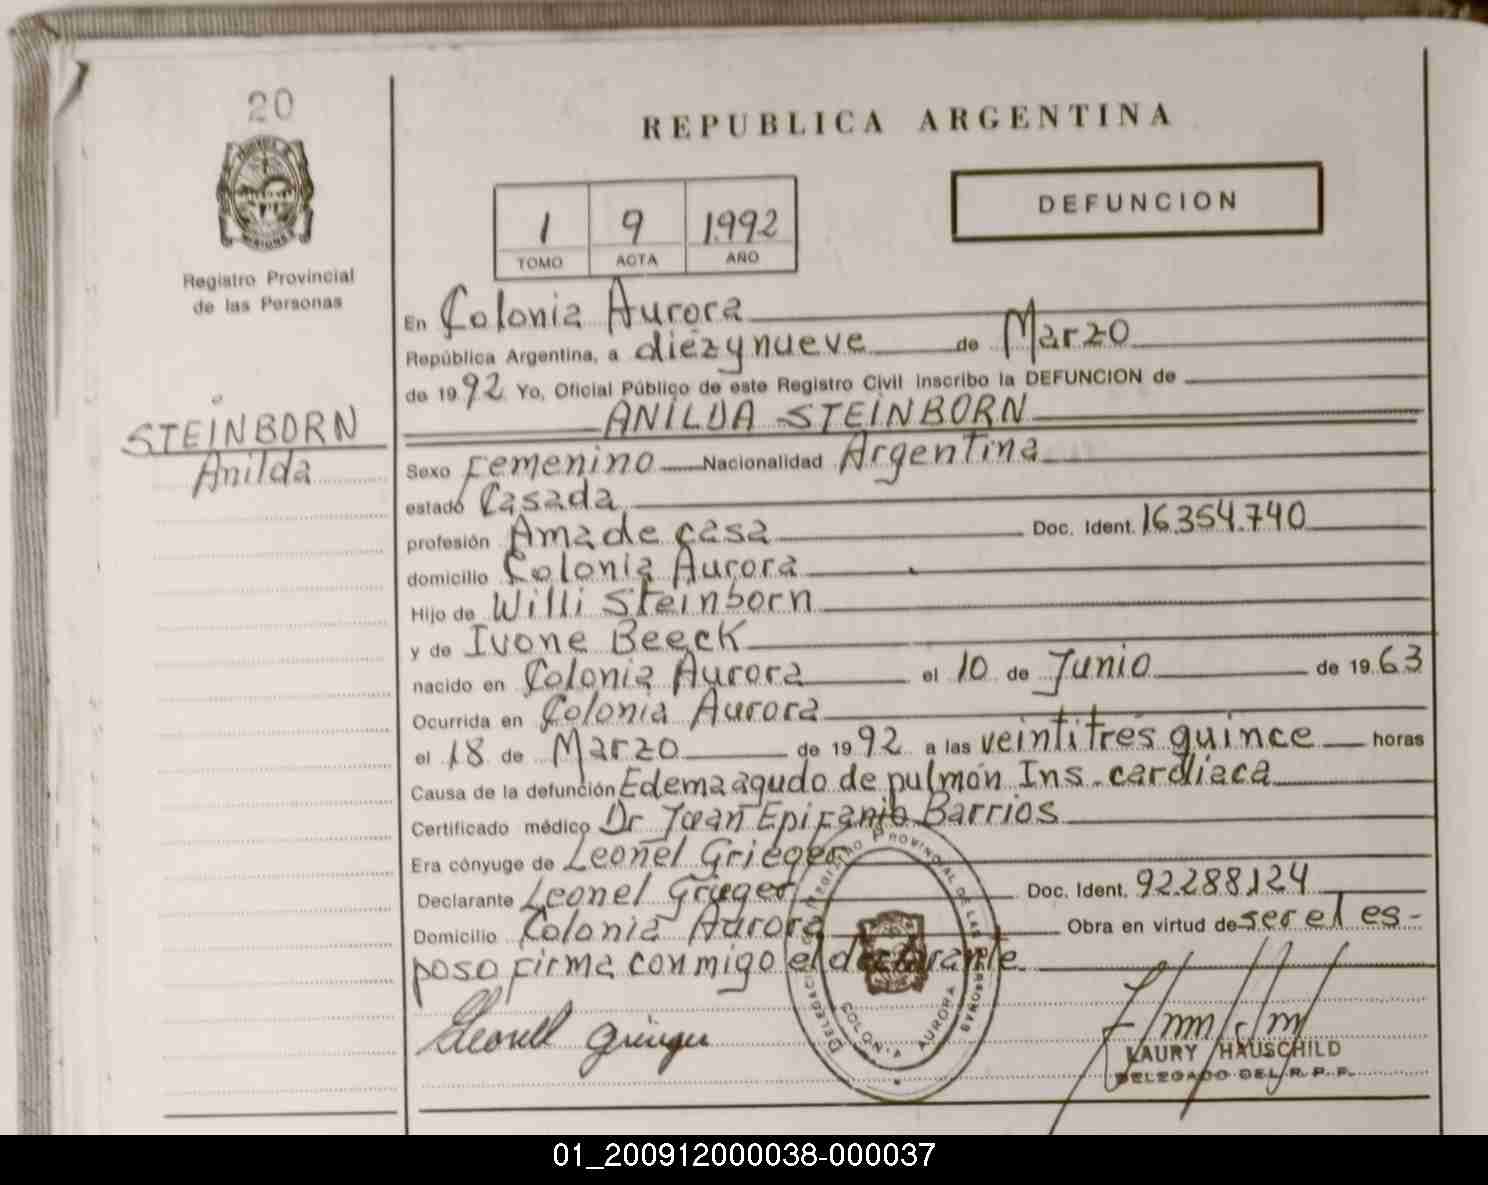 20
REPUBLICA ARGENTINA
DEFUNCION
1 9 1992
TOMO ACTA AÑO
Registro Provincial
de las Personas
STEINBORN
Anilda
En Colonia Aurora
República Argentina, a diezynueve de Marzo
de 1992 Yo, Oficial Público de este Registro Civil inscribo la DEFUNCION de
ANILDA STEINBORN
Sexo Femenino Nacionalidad Argentina
estado Casada
profesión Ama de casa Doc. Ident. 16.354.740
domicilio Colonia Aurora
Hijo de Willi Steinborn
y de Ivone Beeck
nacido en Colonia Aurora el 10 de Junio de 1963
Ocurrida en Colonia Aurora
el 18 de Marzo de 1992 a las veintitrés quince horas
Causa de la defunción Edema agudo de pulmón Ins. cardiaca
Certificado médico Dr Juan Epifanio Barrios
Era cónyuge de Leonel Grieger
Declarante Leonel Grieger Doc. Ident. 92.288.124
Domicilio Colonia Aurora Obra en virtud de ser el es-
poso firma conmigo el declarante
DELEGACION REGISTRO PROVINCIAL DE LAS PERSONAS
COLONIA AURORA
Leonell Grieger
LAURY HAUSCHILD
DELEGADO DEL R. P. P.
01_200912000038-000037